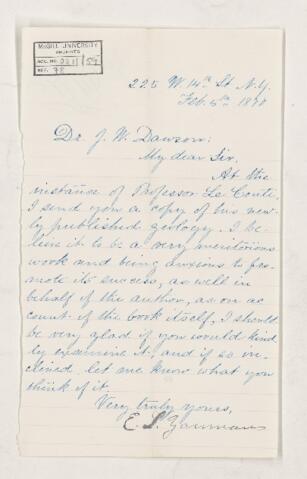 McGILL UNIVERSITY
ARCHIVES
ACC. NO.
REF.
225 W. 14th St. N.Y.
Feb. 5th 1878
Dr. J. W. Dawson:
My dear Sir,
At the
instance of Professor Le Conte,
I send you a copy of his new-
ly published geology. I be-
lieve it to be a very meritorious
work and being anxious to pro-
mote its success, as well in
behalf of the author, as on ac
count of the book itself, I should
be very glad if you would kind
ly examine it, and if so in-
clined let me know what you
think of it.
Very truly yours,
E. L. Youmans